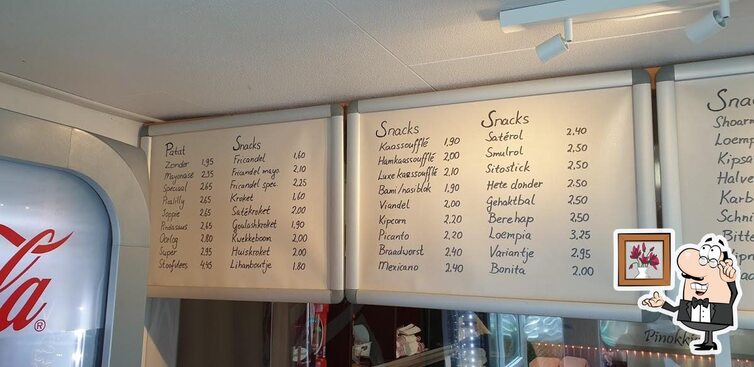 Patat
Zonder 1,95
Mayonaise 2,35
Speciaal 2,65
Picalilly 2,65
Joppie 2,65
Pindasaus 2,65
Oorlog 2,80
Super 2,95
Stoofvlees 4,95
Snacks
Fricandel 1,60
Fricandel mayo 2,10
Fricandel spec. 2,25
Kroket 1,60
Satékroket 2,00
Goulashkroket 1,90
Kwekkeboom 2,00
Huiskroket 2,00
Lihanboutje 1,80
Snacks
Kaassoufflé 1,90
Hamkaassoufflé 2,00
Luxe kaassoufflé 2,10
Bami/nasiblok 1,90
Viandel 2,00
Kipcorn 2,20
Picanto 2,20
Braadworst 2,40
Mexicano 2,40
Snacks
Satérol 2,40
Smulrol 2,50
Sitostick 2,50
Hete donder 2,50
Gehaktbal 2,50
Berehap 2,50
Loempia 3,25
Variantje 2,95
Bonita 2,00
Snac
Shoarm
Loemp
Kipsa
Halve
Karb
Schni
Bitte
Pinokki
la®